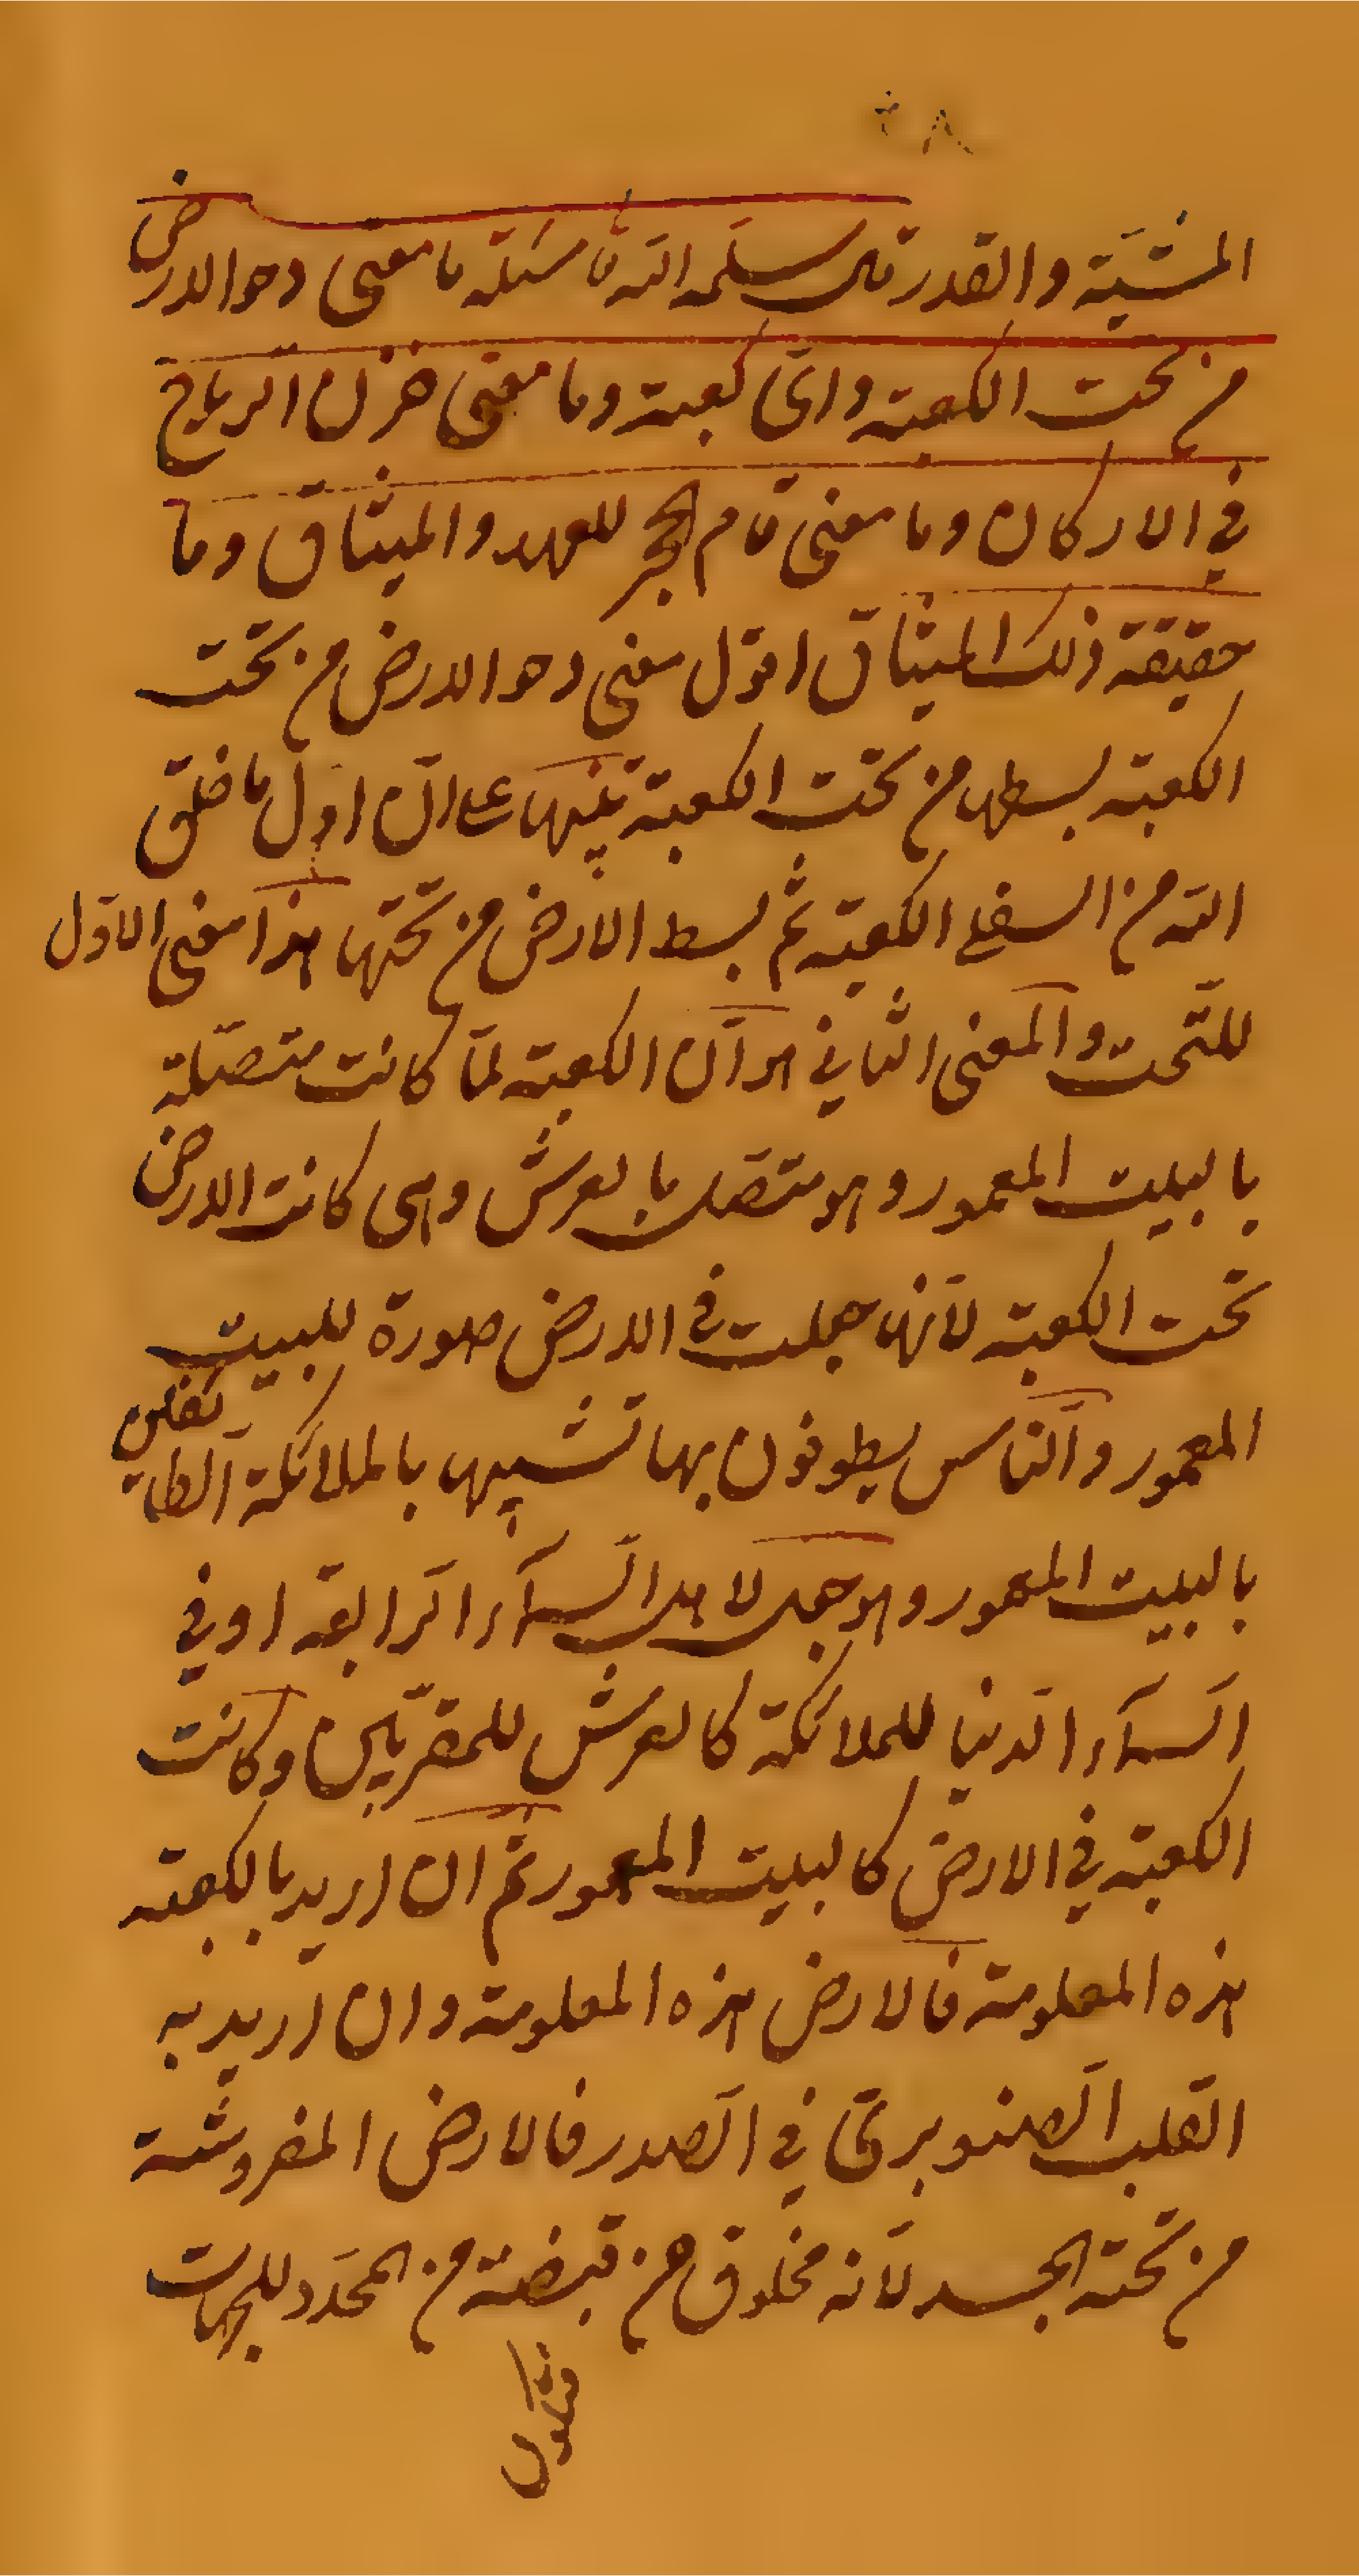 المشيّة والقدر قال سلّمه الله تعا مسئلة ما معنى دحو الارض
من تحت الكعبة واىّ كعبة وما معنى خزن الرياح
فى الاركان وما معنى قام الحجر للعهد والميثاق وما
حقيقة ذلك الميثاق اقول معنى دحو الارض من تحت
الكعبة بسطها من تحت الكعبة تنبيها على انّ اول ما خلق
الله من السفلى الكعبة ثم بسط الارض من تحتها هذا معنى الاوّل
للتّحت والمعنى الثانى هو انّ الكعبة لمّا كانت متصلة
بالبيت المعمور وهو متّصل بالعرش وهى كانت الارض
تحت الكعبة لانّها جعلت فى الارض صورة للبيت
المعمور والنّاس يطوفون بها تشبيها بالملائكة الطائفين
بالبيت المعمور وهو جعل لاهل السّمآء الرّابعة او فى
السّمآء الدنيا للملائكة كالعرش للمقرّبين وكانت
الكعبة فى الارض كالبيت المعمور ثم ان اريد بالكعبة
هذه المعلومة فالارض هذه المعلومة وان اريد به
القلب الصّنوبرىّ فى الصّدر فالارض المفروشة
من تحته الجسد لانّه مخلوق من قبضة من المحدّد للجهات